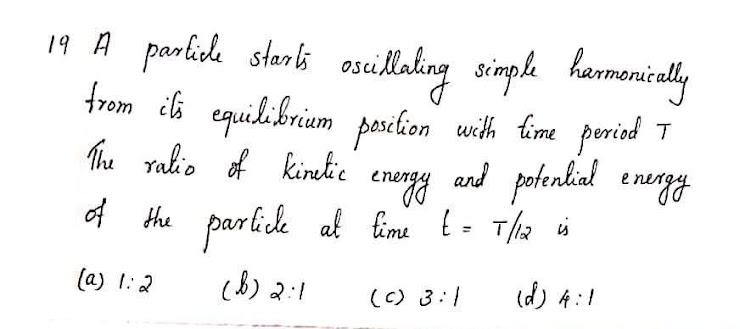 19 A particle starts oscillating simple harmonically
from its equilibrium position with time period T
The ratio of kinetic energy and potential energy
of the particle at time t = T/12 is
(a) 1:2 (b) 2:1 (c) 3:1 (d) 4:1